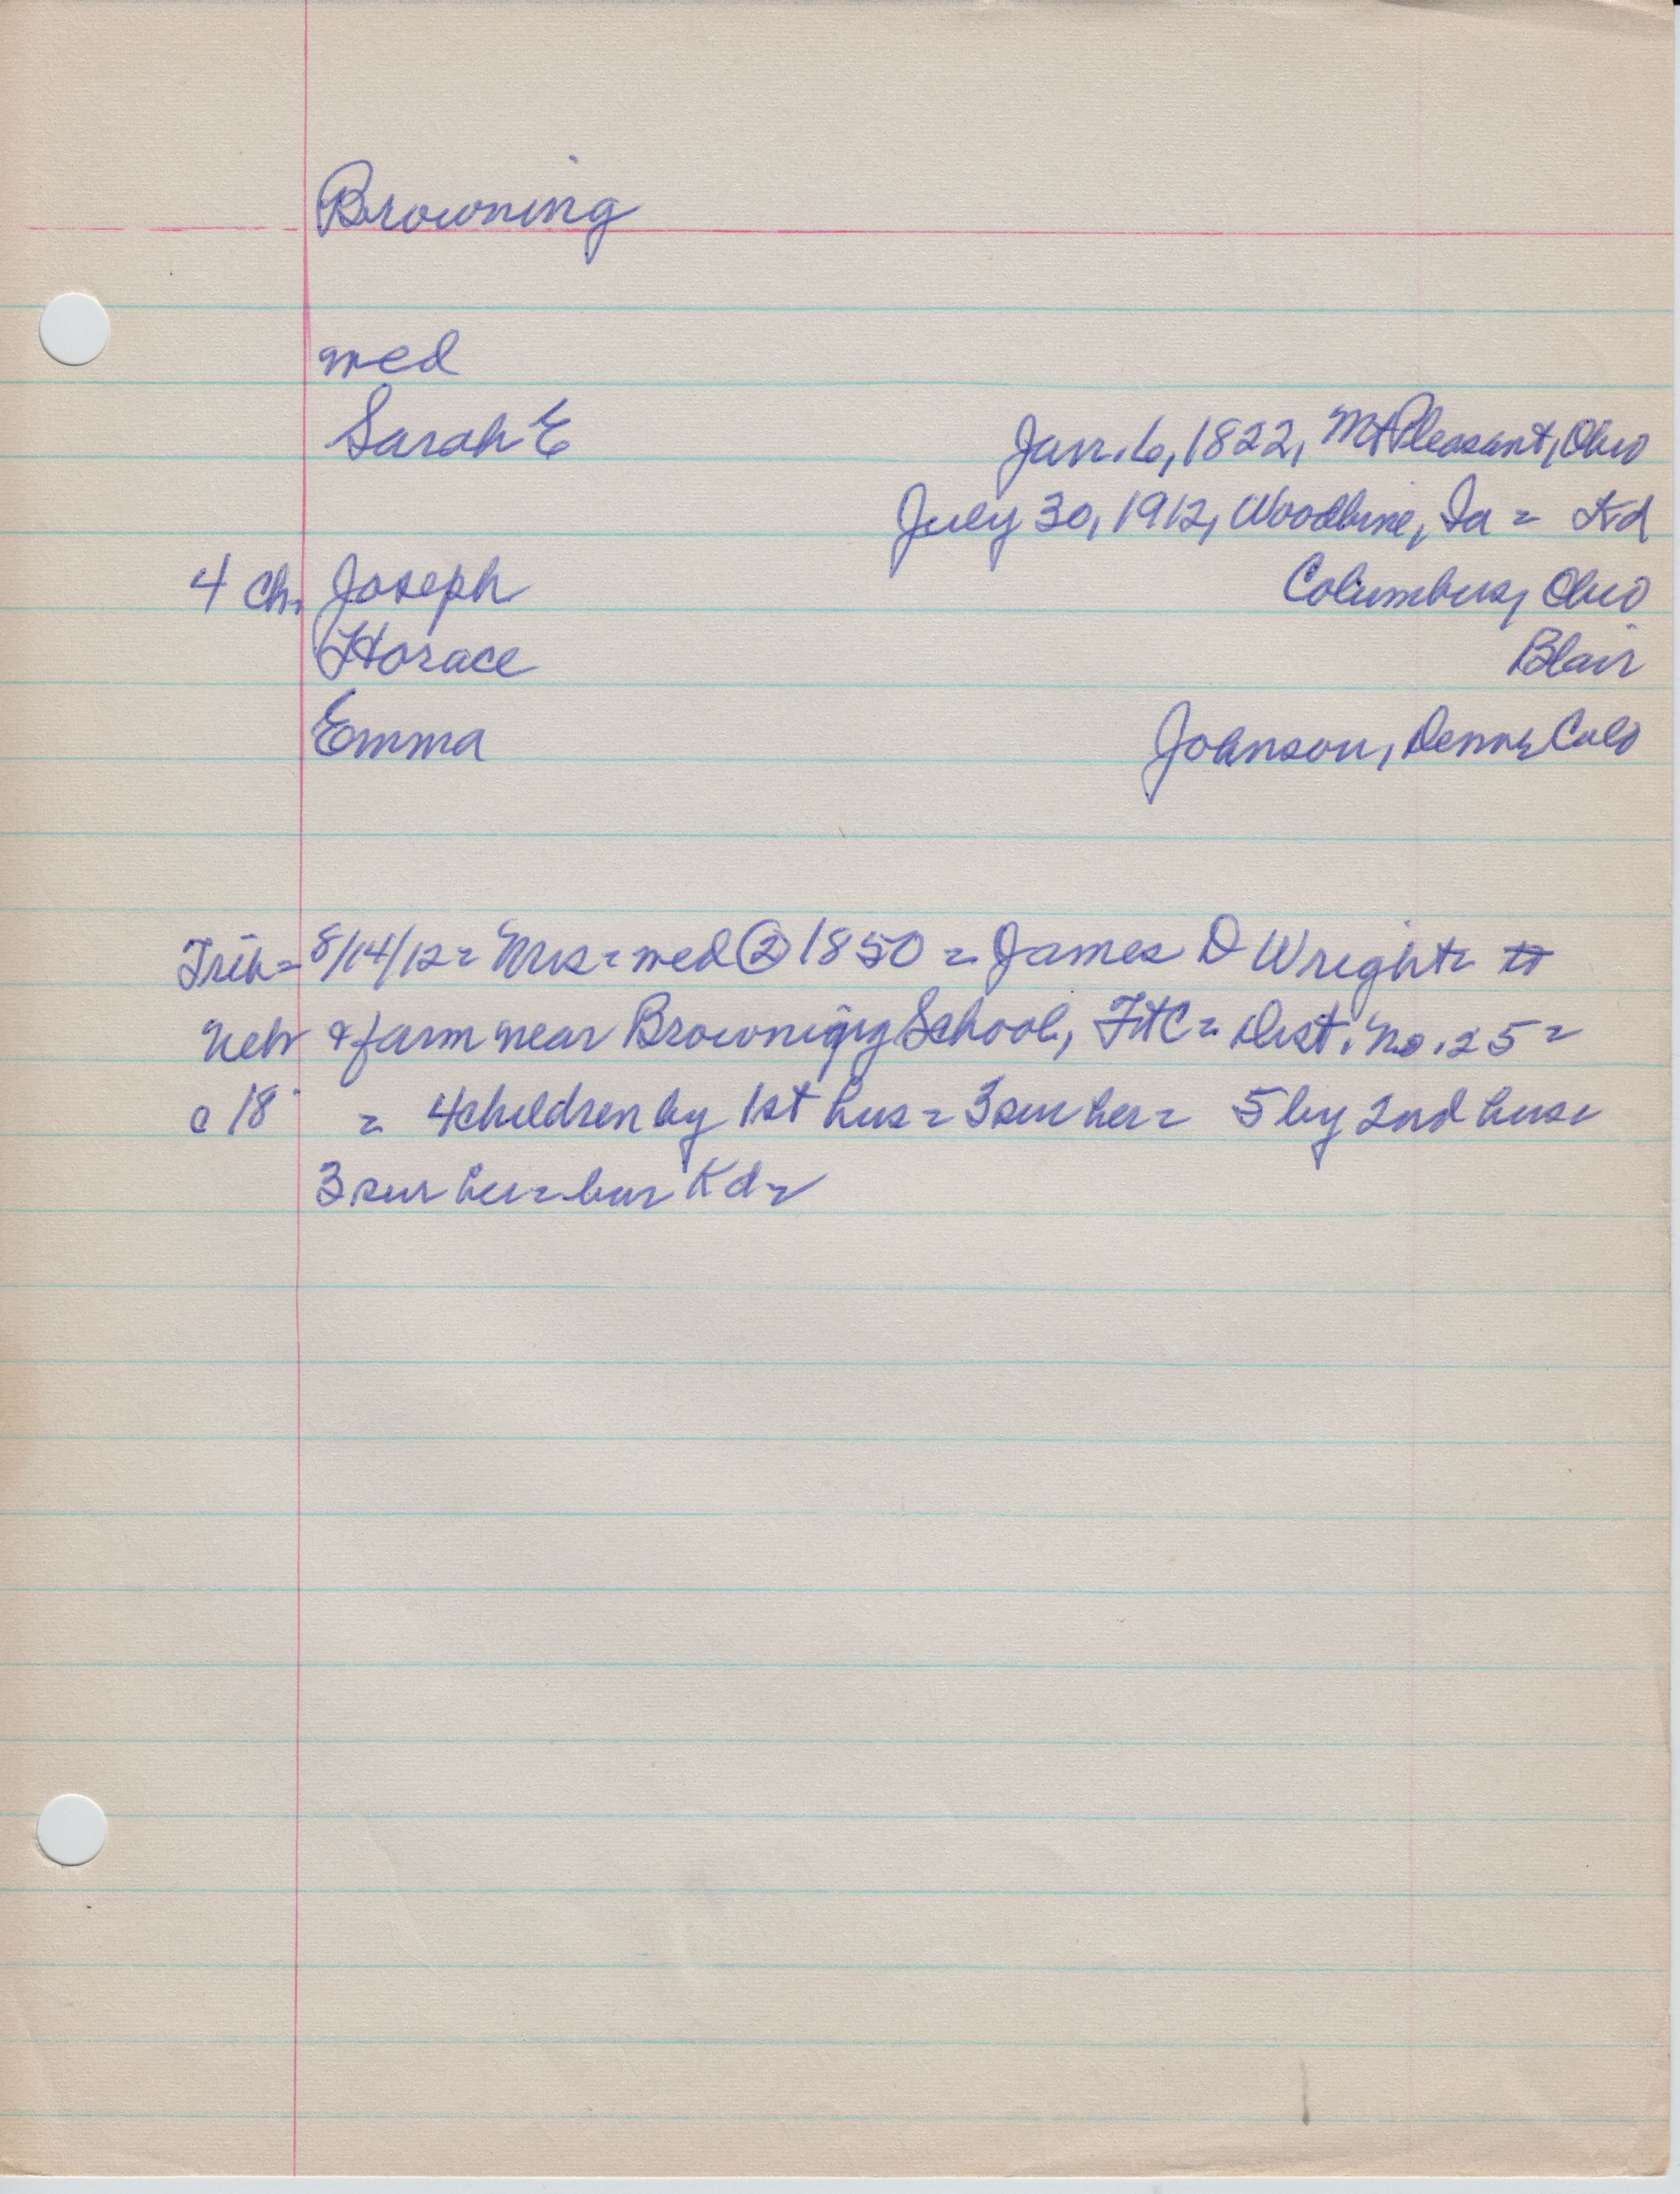 Browning
wed
Sarah E Jan. 6, 1822, Mt Pleasant, Ohio
July 30, 1912, Woodbine, Ia = Kd
4 ch. Joseph Columbus, Ohio
Horace Blair
Emma Johnson, Denver, Colo
Trib = 8/14/12 = Mrs = wed ② 1850 = James D Wright = to
Neb & farm near Browning School, FtC = Dist. No. 25 =
c 18 = 4 children by 1st hus = 3 sur her = 5 by 2nd hus =
3 sur her = bur Kd =